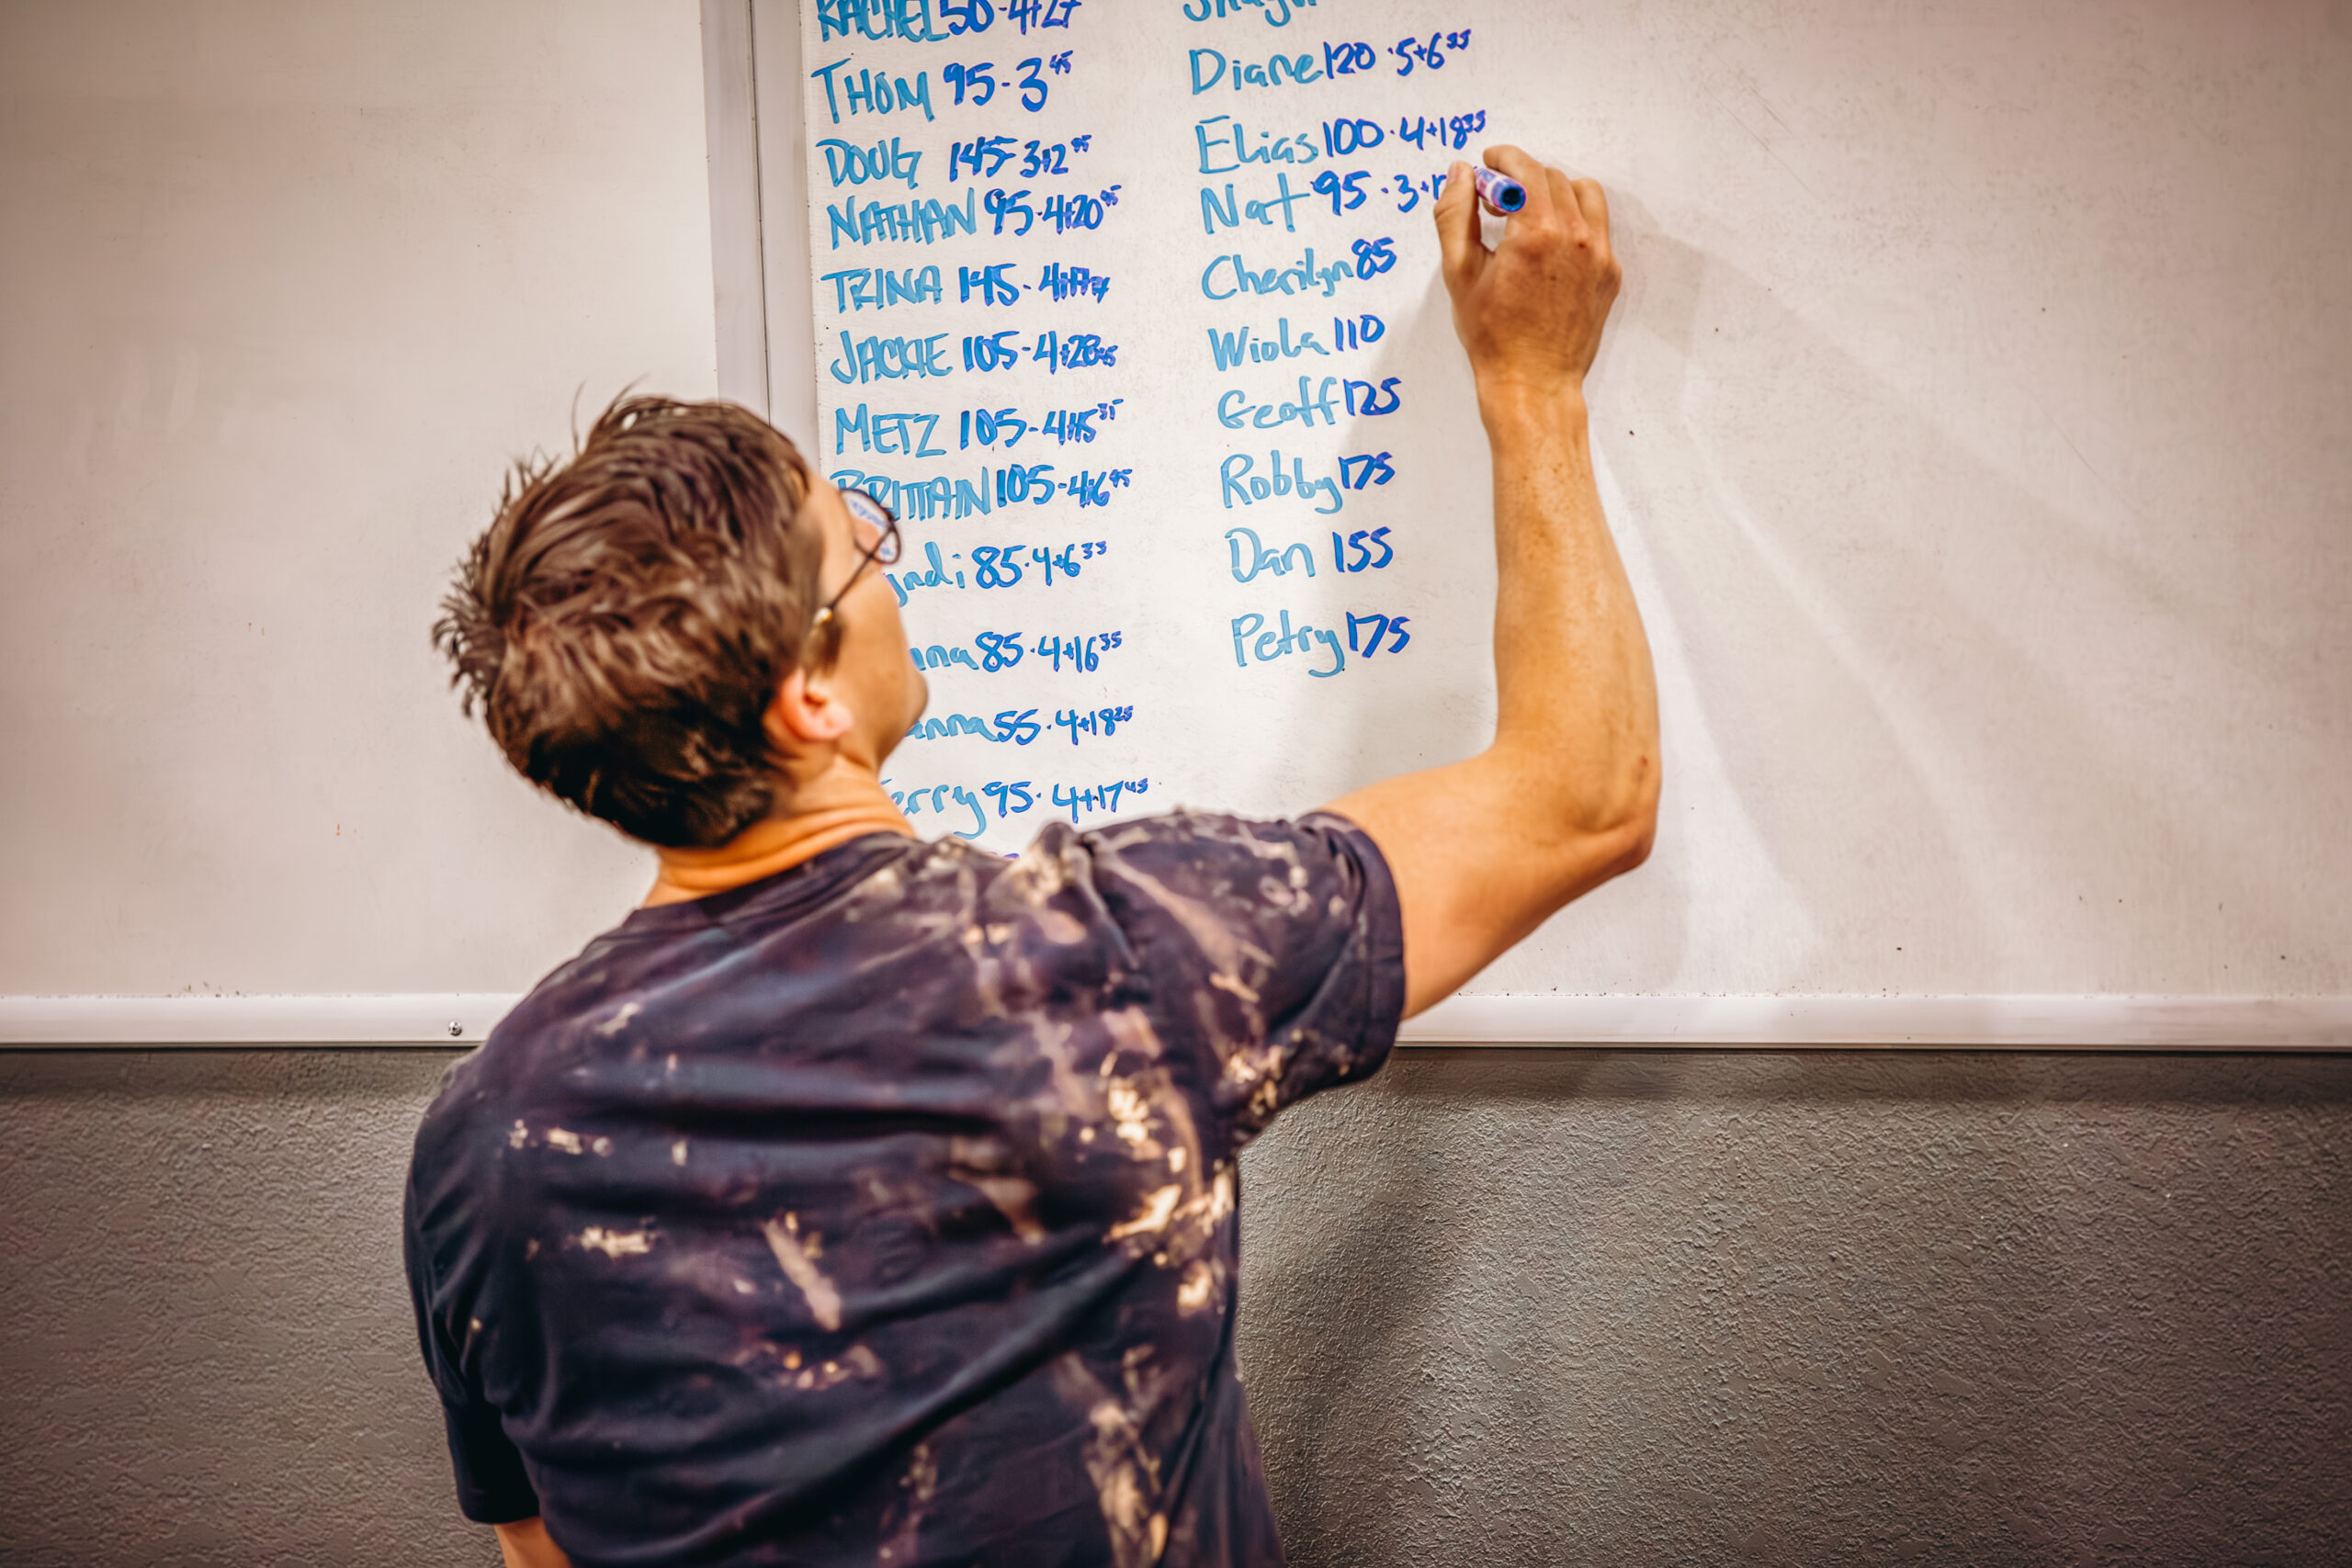 RACHEL 50-4+27
THOM 95-3 45
DOUG 145-3+2 95
NATHAN 95-4+20 45
TRINA 145-
JACKIE 105-4+28
METZ 105-4+15 35
BRITTAIN 105-4+6 45
85·4+6 35
85·4+16 35
55·4+18 25
erry 95·4+17 45
Diane 120·5+6 35
Elias 100·4+18 35
Nat 95·3+1
Cherilyn 85
Wiola 110
Geoff 125
Robby 175
Dan 155
Petry 175